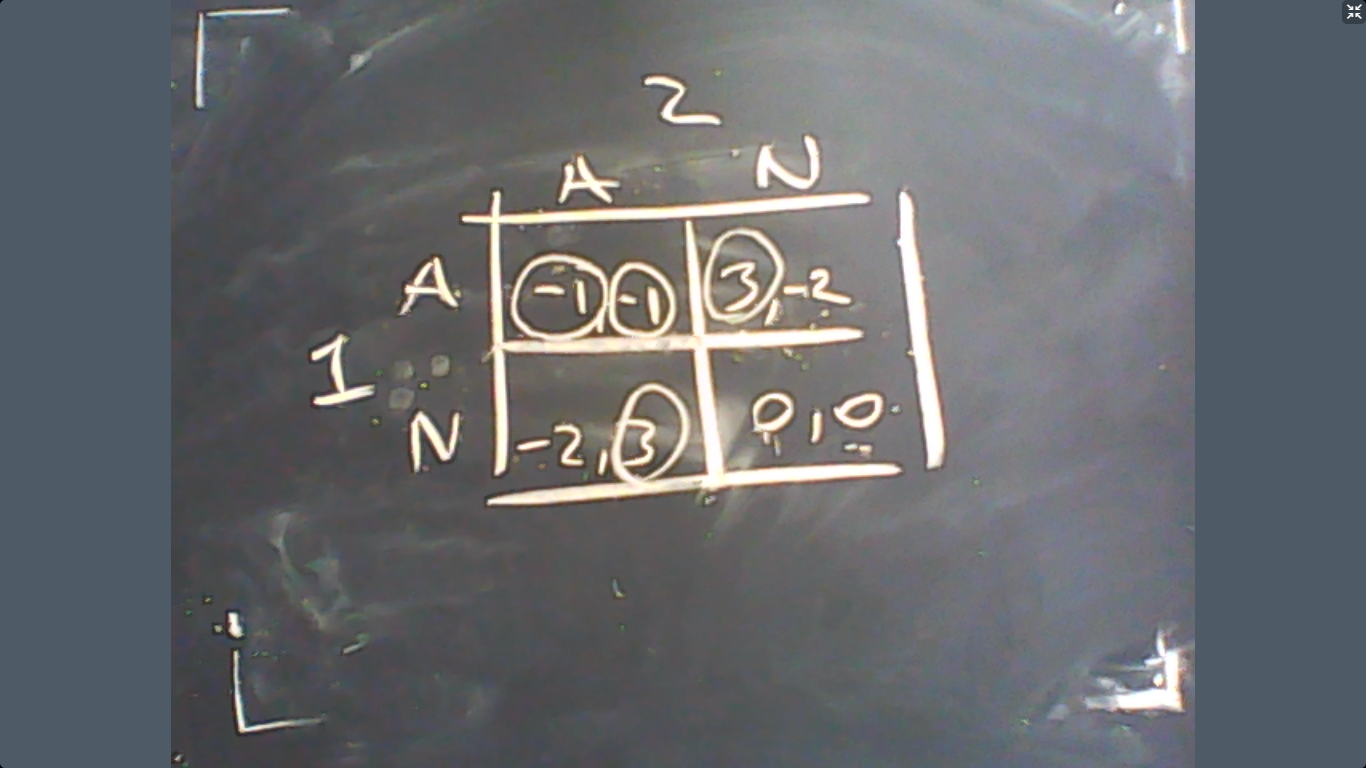 2
A N
A -1, -1 3, -2
1
N -2, 3 0, 0